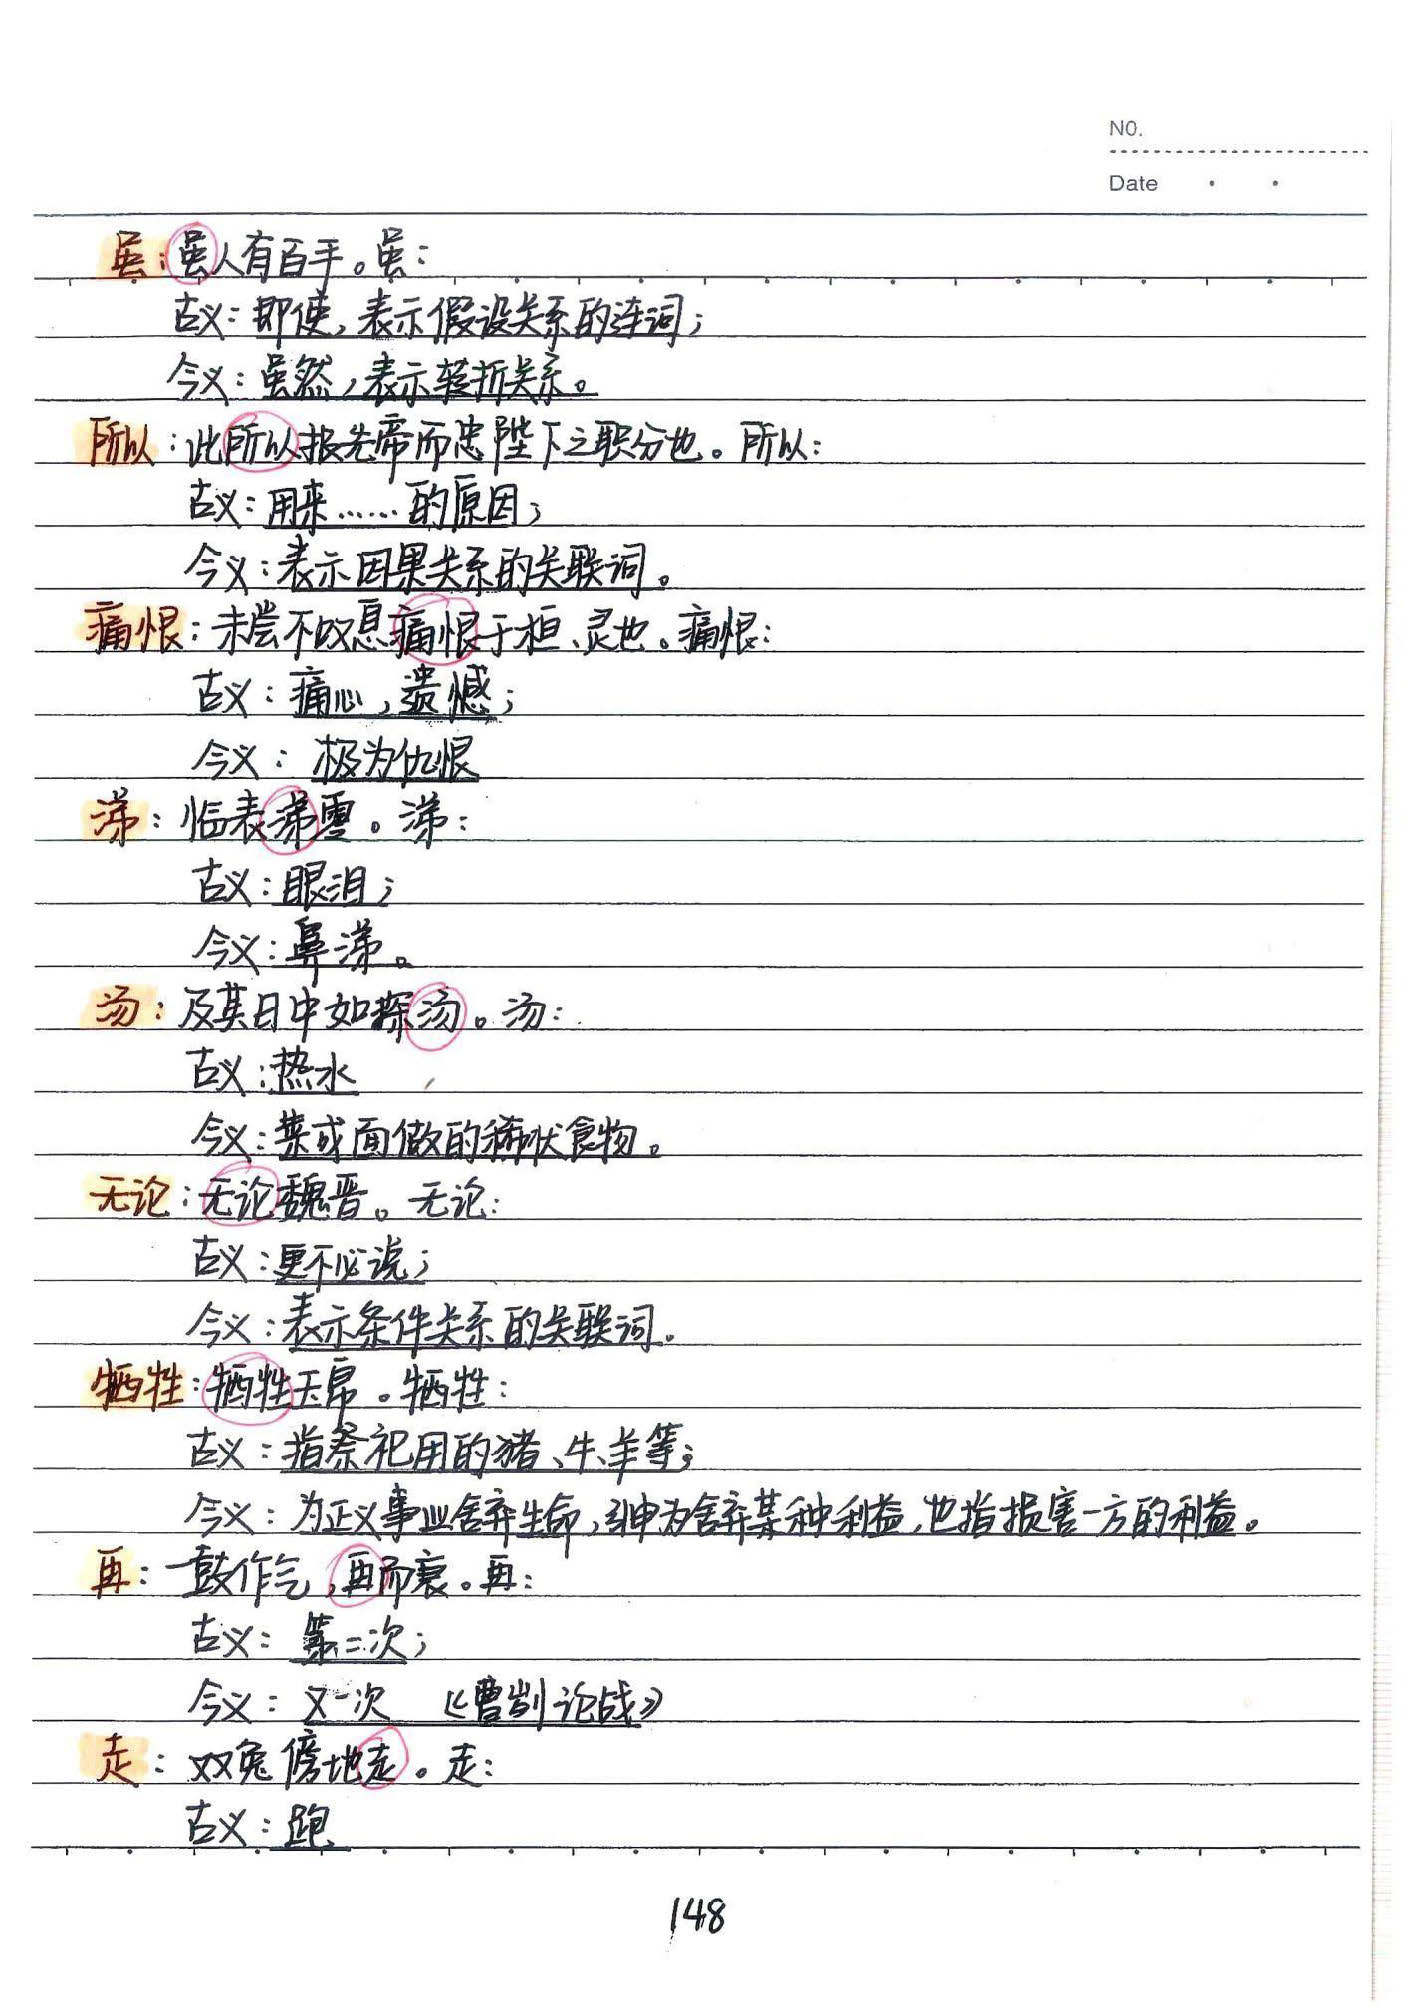 NO.
Date
虽：虽人有百手。虽：
古义：即使，表示假设关系的连词；
今义：虽然，表示转折关系。
所以：此所以报先帝而忠陛下之职分也。所以：
古义：用来……的原因；
今义：表示因果关系的关联词。
痛恨：未尝不叹息痛恨于桓、灵也。痛恨：
古义：痛心，遗憾；
今义：极为仇恨
涕：临表涕零。涕：
古义：眼泪；
今义：鼻涕。
汤：及其日中如探汤。汤：
古义：热水
今义：菜或面做的稀状食物。
无论：无论魏晋。无论：
古义：更不必说；
今义：表示条件关系的关联词。
牺牲：牺牲玉帛。牺牲：
古义：指祭祀用的猪、牛、羊等；
今义：为正义事业舍弃生命，引申为舍弃某种利益，也指损害一方的利益。
再：一鼓作气，再而衰。再：
古义：第二次；
今义：又一次 《曹刿论战》
走：双兔傍地走。走：
古义：跑
148